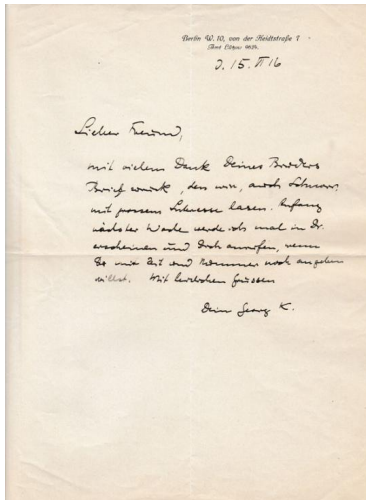 Berlin W. 10, von der Heidtstraße 1
Amt Lützow 4624.
D. 15. II 16
Lieber Freund,
mit vielem Dank Deines Bruders
Brief zurück, den wir, auch
mit grossem Interesse lasen. Anfang
nächster Woche werde ich mal in Dr.
erscheinen und Dich anrufen, wenn
Du mir Zeit und Nummer noch angeben
willst. Mit herzlichen Grüssen
Dein Georg K.